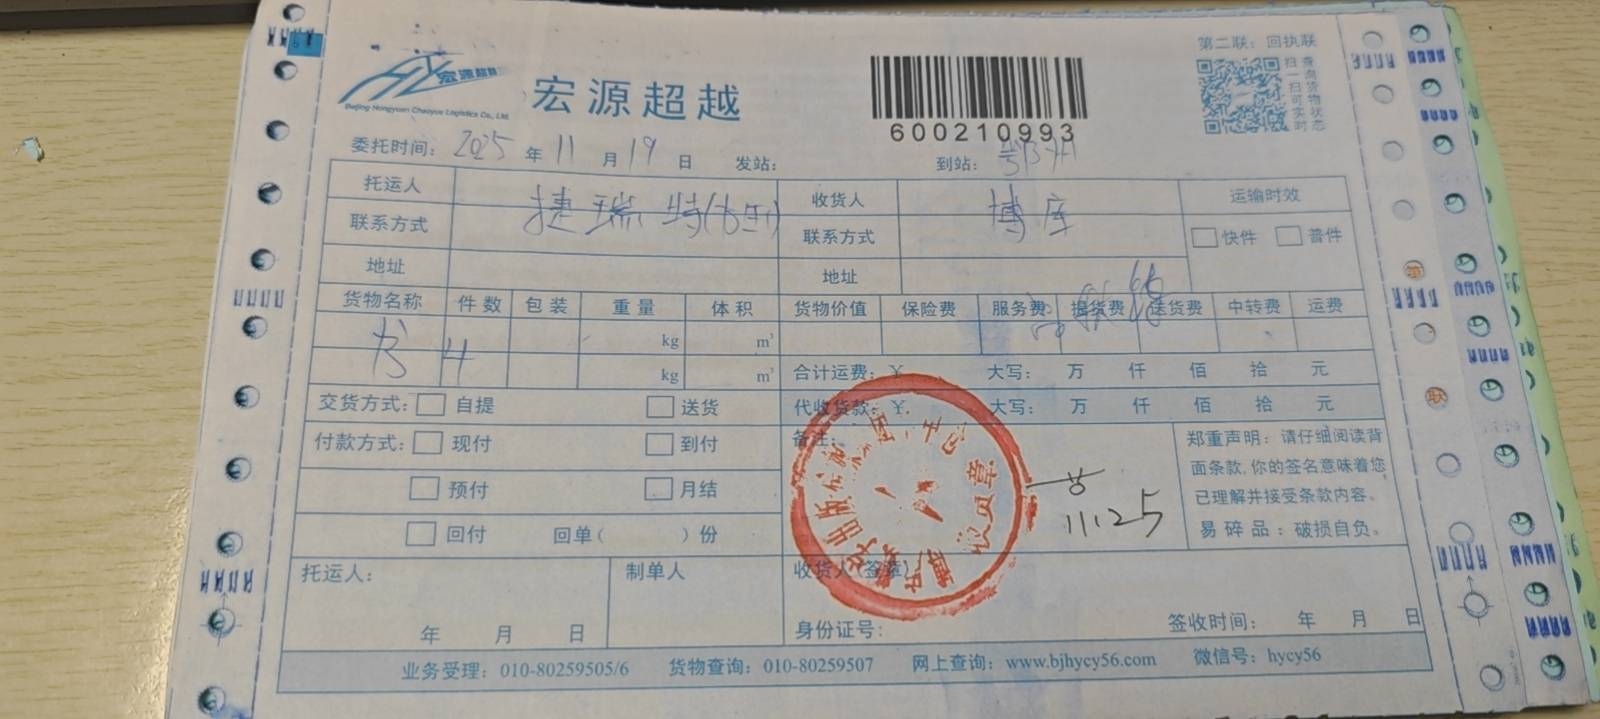 第二联：回执联
宏源超越
Beijing Hongyuan Chaoyue Logistics Co., Ltd.
宏源超越
600210993
扫一扫可实时
查询货物状态
委托时间：2025年11月19日 发站： 到站：
托运人 捷瑞特 收货人 博库 运输时效
联系方式 联系方式 快件 普件
地址 地址
货物名称 件数 包装 重量 体积 货物价值 保险费 服务费 提货费 送货费 中转费 运费
书 4 kg m³
kg m³ 合计运费：￥ 大写： 万 仟 佰 拾 元
交货方式： 自提 送货 代收货款：￥ 大写： 万 仟 佰 拾 元
付款方式： 现付 到付 备注：
预付 月结
回付 回单（ ）份
郑重声明：请仔细阅读背
面条款，你的签名意味着您
已理解并接受条款内容。
易碎品：破损自负。
11.25
托运人： 制单人 收货人（签章）
年 月 日 身份证号： 签收时间： 年 月 日
业务受理：010-80259505/6 货物查询：010-80259507 网上查询：www.bjhycy56.com 微信号：hycy56